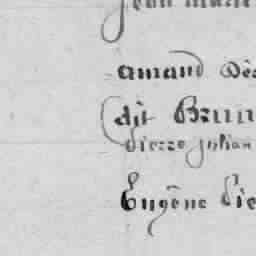 Jean Marie
amand Dés
dit Brun
pierre julian
Eugêne Pie